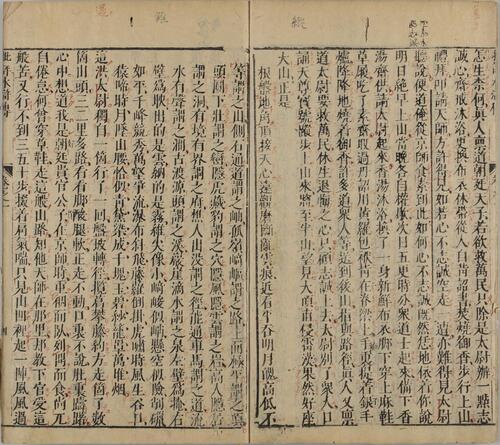 怎生奈何真人稟道朝廷天子若欲救萬民只除是太尉辦一點志
誠心齋戒沐浴更換布衣休帶從人自背詔書焚燒御香步行上山
禮拜叩請天師方許得見如若心不志誠空走一遭亦難得見太尉
聽說便道俺從京師食素到此如何心不志誠既然恁地依着你說
明日絕早上山當晚各自權歇次日五更時分衆道士起來備下香
湯齋供請太尉起來香湯沐浴換了一身新鮮布衣脚下穿上麻鞋
草履吃了素齋取過丹詔用黃羅包袱背在脊梁上手裏提着銀手
爐降降地燒着御香許多道衆人等送到後山指與路徑真人又禀
道太尉要救萬民休生退悔之心只顧志誠上去太尉別了衆人口
誦天尊寶號縱步上山來將至半山望見大頂直侵霄漢果然好座
大山正是
根盤地角頂接天心遠觀磨斷亂雲痕近看平吞明月魄高低不
等謂之山側石通道謂之岫孤嶺崎嶇謂之路上面極平謂之頂
頭圓下壯謂之巒隱虎藏豹謂之穴隱風隱雲謂之巖高人隱居
謂之洞有境有界謂之府樵人出没謂之徑能通車馬謂之道流
水有聲謂之澗古渡源頭謂之溪巖崖滴水謂之泉左壁爲掩右
壁爲映出的是雲納的是霧錐尖像小崎峻似峭懸空似險削
如平千峰競秀萬壑爭流瀑布斜飛藤蘿倒掛虎嘯時風生谷口
猿啼時月墜山腰恰似青黛染成千塊玉碧紗籠罩萬堆烟
這洪太尉獨自一個行了一回盤坡轉徑攬葛攀藤約走了數
個山頭三二里多路看看脚酸腿軟正走不動口裏不說肚裏躊躇
心中想道我是朝廷貴官公子在京師時重裀而臥列鼎而食尚兀
自倦怠何曾穿草鞋走這般山路知他天師在那里却教下官受這
般苦又行不到三五十步掇着肩氣喘只見山凹裡起一陣風風過